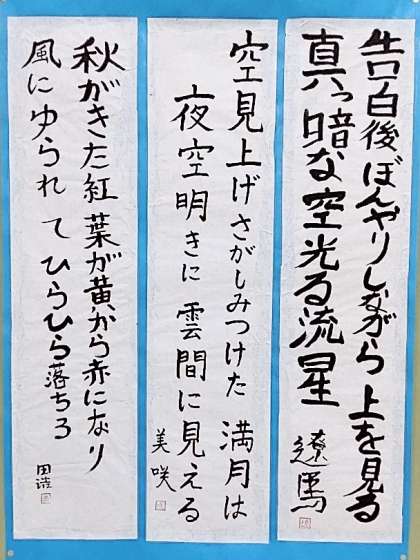 告白後ぼんやりしながら上を見る
真っ暗な空光る流星
遼馬
空見上げさがしみつけた満月は
夜空明きに雲間に見える
美咲
秋がきた紅葉が黄から赤になり
風にゆられてひらひら落ちる